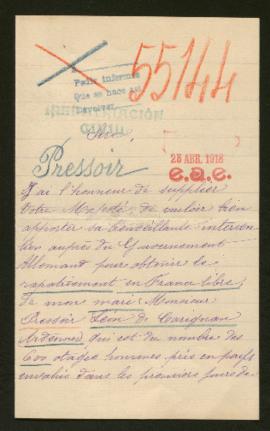 55144
Pase informe
que se hace al
REPRESENTACIÓN
CIVIL
Sire,
Pressoir
23 ABR. 1918
e.a.e.
J'ai l'honneur de supplier
Votre Majesté, de vouloir bien
apporter sa bienveillante interven
tion auprès du Gouvernement
Allemand pour obtenir le
rapatriement en France libre,
de mon mari: Monsieur
Pressoir Léon de Carignan
Ardennes, qui est du nombre des
600 otages hommes pris en pays
envahis dans les premiers jours de